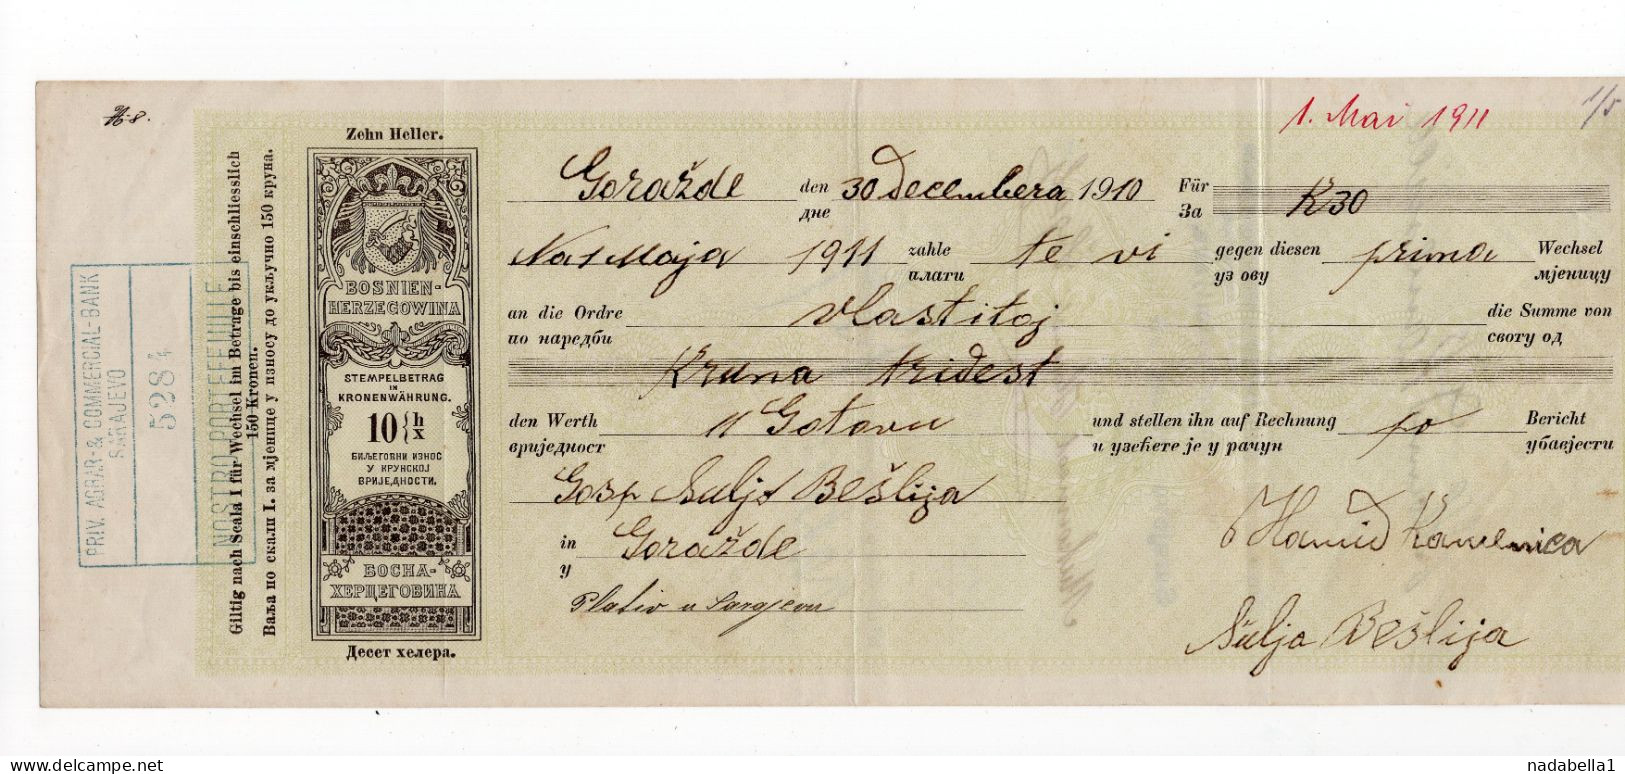 H-8.
1. Mai 1911
1/5
Zehn Heller.
BOSNIEN-
HERZEGOWINA
STEMPELBETRAG
IN
KRONENWÄHRUNG.
10 h
х
БИЉЕГОВНИ ИЗНОС
У КРУНСКОЈ
ВРИЈЕДНОСТИ.
БОСНА-
ХЕРЦЕГОВИНА
Десет хелера.
Giltig nach Scala I für Wechsel im Betrage bis einschliesslich
150 Kronen.
Ваља по скали I. за мјенице у износу до укључно 150 круна.
PRIV. AGRAR- & COMMERCIAL-BANK
SARAJEVO
5284
NOSTRO PORTEFEUILLE
Goražde den 30 Decembera 1910 Für K30
дне За
Na 1 Maja 1911 zahle te vi gegen diesen prima Wechsel
плати уз ову мјеницу
an die Ordre vlastitoj die Summe von
по наредби своту од
Kruna trideset
den Werth u Gotovu und stellen ihn auf Rechnung po Bericht
вриједност и узећете је у рачун убавјести
Gosp Suljo Bešlija
in Goražde
у
Plativo u Sarajevu
Hamid Kamenica
Sulja Bešlija
nadabella1
delcampe.net